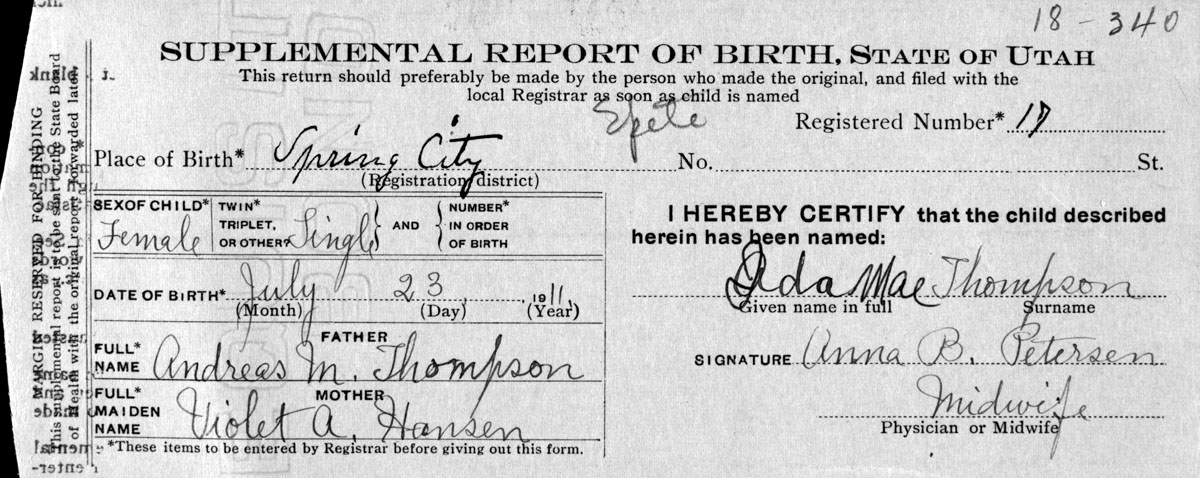 18-340
SUPPLEMENTAL REPORT OF BIRTH, STATE OF UTAH
This return should preferably be made by the person who made the original, and filed with the
local Registrar as soon as child is named
Registered Number* 17
Place of Birth* Spring City No. St.
(Registration district)
SEX OF CHILD* Female TWIN* TRIPLET, OR OTHER? Single AND NUMBER* IN ORDER OF BIRTH
DATE OF BIRTH* July 23, 1911,
(Month) (Day) (Year)
FATHER
FULL* NAME Andreas M. Thompson
MOTHER
FULL* MAIDEN NAME Violet A. Hansen
*These items to be entered by Registrar before giving out this form.
I HEREBY CERTIFY that the child described
herein has been named:
Ida Mae Thompson
Given name in full Surname
SIGNATURE Anna B. Petersen
Midwife
Physician or Midwife
MARGIN RESERVED FOR BINDING
This supplemental report is to be sent to the State Board
of Health with the original report, forwarded later